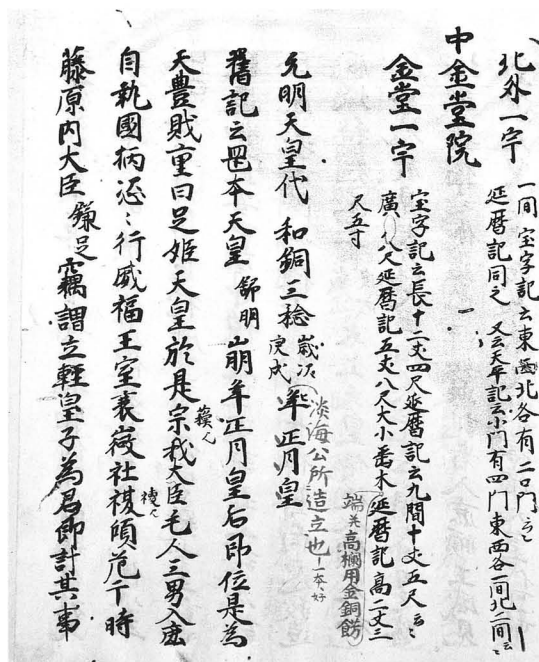 北外一宇
一間 宝字記云東西北各有二口門云々
延暦記同之 又云天平記云小門有四門東西各一間北二間云々
中金堂院
金堂一宇
宝字記云長十二丈四尺延暦記云九間十丈五尺云々
廣八尺延暦記五丈八尺大小垂木延暦記高二丈三
尺五寸
端并高欄用金銅餝
元明天皇代 和銅三稔 歳次庚戌
淡海公所造立也一本好
年正月皇
舊記云罡本天皇 舒明 崩年正月皇后即位是為
天豊財重日足姫天皇於是宗我大臣毛人三男入鹿
自執國柄恣々行威福王室衰微社稷傾危于時
藤原内大臣 鎌足 竊謂立軽皇子為君即計其事